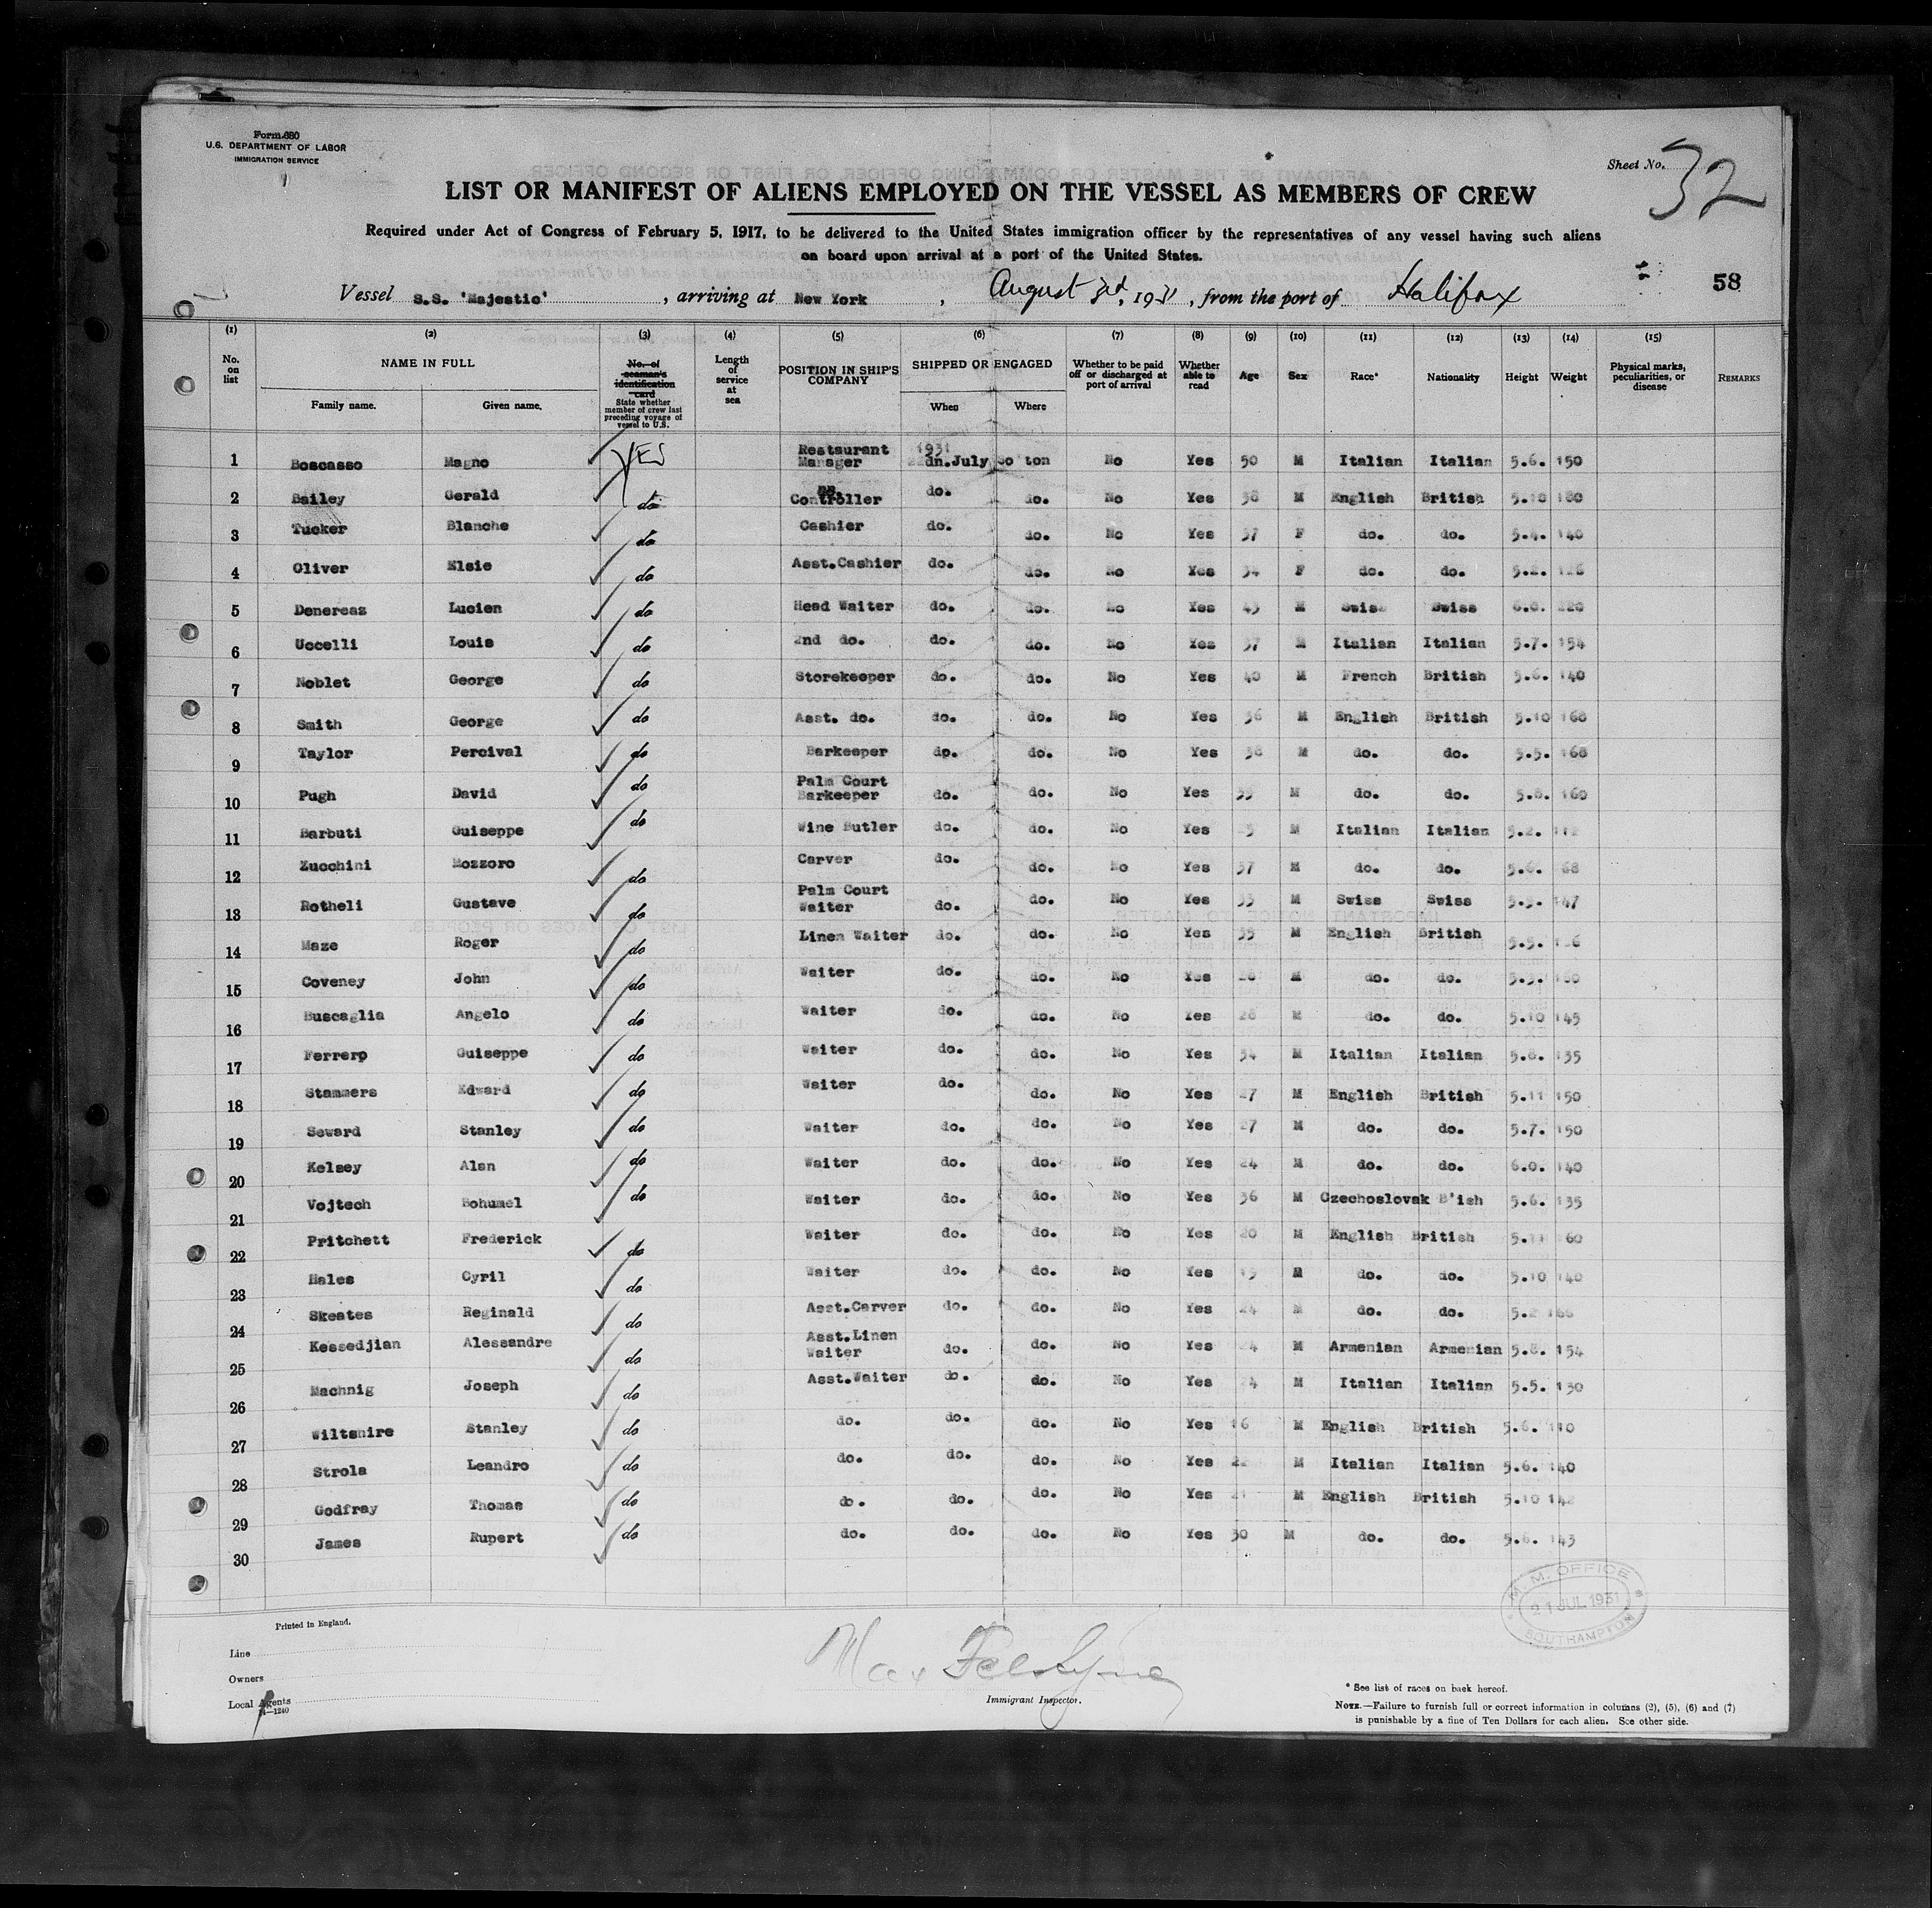 Form 680
U.S. DEPARTMENT OF LABOR
IMMIGRATION SERVICE
Sheet No. 32
LIST OR MANIFEST OF ALIENS EMPLOYED ON THE VESSEL AS MEMBERS OF CREW
Required under Act of Congress of February 5, 1917, to be delivered to the United States immigration officer by the representatives of any vessel having such aliens
on board upon arrival at a port of the United States.
Vessel S.S. 'Majestic', arriving at New York, August 3rd, 1931, from the port of Halifax 58
(1) (2) (3) (4) (5) (6) (7) (8) (9) (10) (11) (12) (13) (14) (15)
No. on list NAME IN FULL Family name. Given name. No. of seaman's identification card State whether member of crew last preceding voyage of vessel to U.S. Length of service at sea POSITION IN SHIP'S COMPANY SHIPPED OR ENGAGED When Where Whether to be paid off or discharged at port of arrival Whether able to read Age Sex Race* Nationality Height Weight Physical marks, peculiarities, or disease REMARKS
1 Boscasso Magno YES Restaurant Manager 1931 July So'ton No Yes 50 M Italian Italian 5.6. 150
2 Bailey Gerald do Controller do. do. No Yes 38 M English British 5.10 180
3 Tucker Blanche do Cashier do. do. No Yes 37 F do. do. 5.4. 140
4 Oliver Elsie do Asst.Cashier do. do. No Yes 34 F do. do. 5.2.
5 Denereaz Lucien do Head Waiter do. do. No Yes 45 M Swiss Swiss 6.0. 220
6 Uccelli Louis do 2nd do. do. do. No Yes 37 M Italian Italian 5.7. 154
7 Noblet George do Storekeeper do. do. No Yes 40 M French British 5.6. 140
8 Smith George do Asst. do. do. do. No Yes 36 M English British 5.10 168
9 Taylor Percival do Barkeeper do. do. No Yes 38 M do. do. 5.5. 168
10 Pugh David do Palm Court Barkeeper do. do. No Yes 39 M do. do. 5.8. 160
11 Barbuti Guiseppe do Wine Butler do. do. No Yes M Italian Italian 5.2. 112
12 Zucchini Mozzoro do Carver do. do. No Yes 37 M do. do. 5.6. 68
13 Rotheli Gustave do Palm Court Waiter do. do. No Yes 33 M Swiss Swiss 5.9. 147
14 Maze Roger do Linen Waiter do. do. No Yes 35 M English British 5.5.
15 Coveney John do Waiter do. do. No Yes 28 M do. do. 5.9.
16 Buscaglia Angelo do Waiter do. do. No Yes 28 M do. do. 5.10 145
17 Ferrero Guiseppe do Waiter do. do. No Yes 34 M Italian Italian 5.8. 135
18 Stammers Edward do Waiter do. do. No Yes 27 M English British 5.11 150
19 Seward Stanley do Waiter do. do. No Yes 27 M do. do. 5.7. 150
20 Kelsey Alan do Waiter do. do. No Yes 24 M do. do. 6.0. 140
21 Vojtech Bohumel do Waiter do. do. No Yes 36 M Czechoslovak B'ish 5.6. 135
22 Pritchett Frederick do Waiter do. do. No Yes 20 M English British 5.11 160
23 Hales Cyril do Waiter do. do. No Yes 19 M do. do. 5.10 140
24 Skeates Reginald do Asst.Carver do. do. No Yes 24 M do. do. 5.2
25 Kessedjian Alessandre do Asst.Linen Waiter do. do. No Yes 24 M Armenian Armenian 5.8. 154
26 Machnig Joseph do Asst.Waiter do. do. No Yes 24 M Italian Italian 5.5. 130
27 Wiltshire Stanley do do. do. do. No Yes 16 M English British 5.6. 110
28 Strola Leandro do do. do. do. No Yes M Italian Italian 5.6. 140
29 Godfray Thomas do do. do. do. No Yes 21 M English British 5.10 142
30 James Rupert do do. do. do. No Yes 30 M do. do. 5.6. 143
M.M. OFFICE
21 JUL 1931
SOUTHAMPTON
Printed in England.
Line
Owners
Local Agents
14—1240
Immigrant Inspector.
* See list of races on back hereof.
NOTE.—Failure to furnish full or correct information in columns (2), (5), (6) and (7)
is punishable by a fine of Ten Dollars for each alien. See other side.